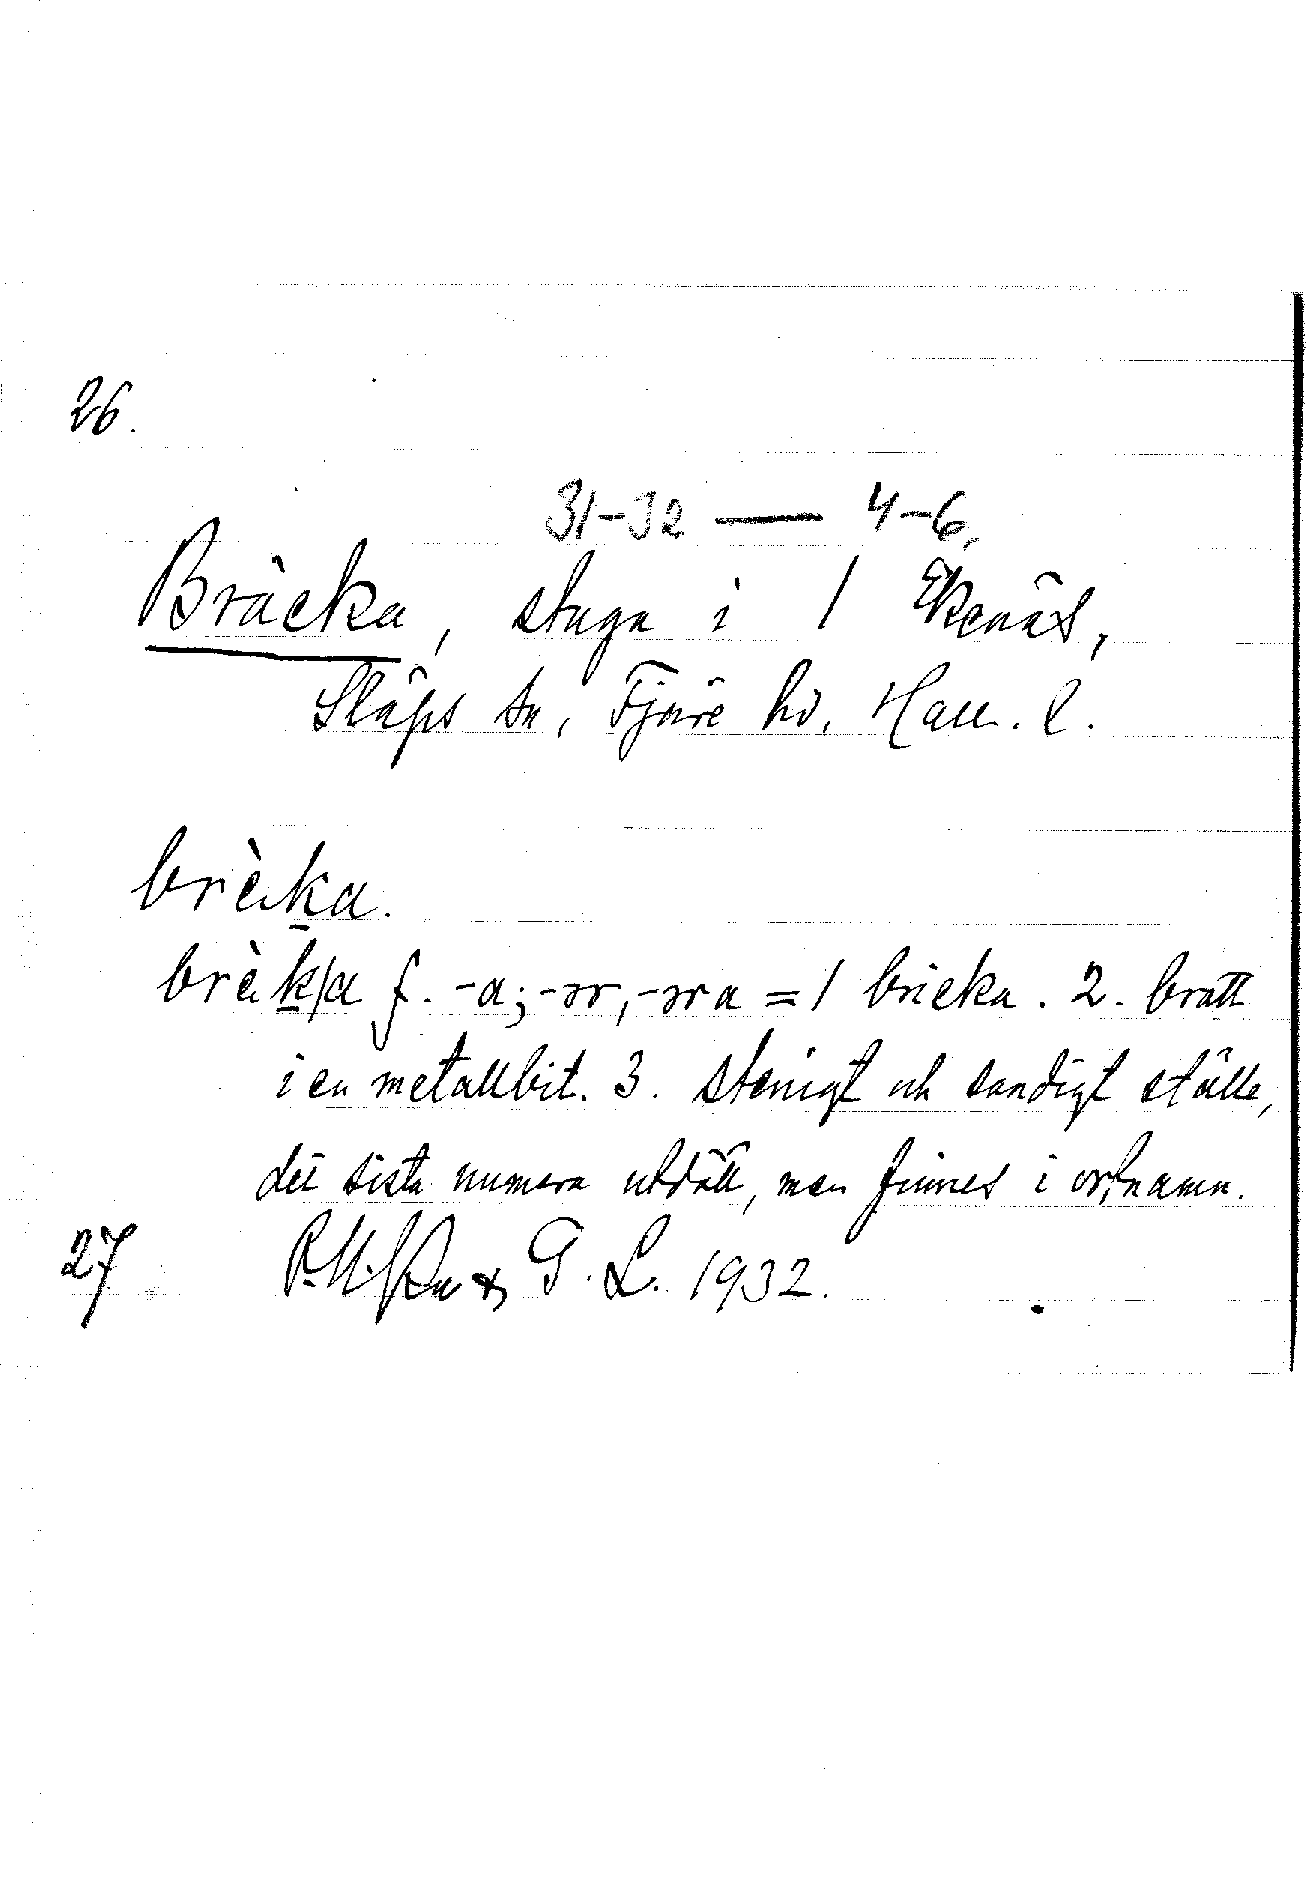 26.
31-32 — 4-6.
Bräcka, stuga i 1 Ekenäs,
Släps sn, Fjäre hd, Hall. l.
brèka.
brèk/a f. -a; -ər, -əra = 1 bricka. 2. brott
i en metallbit. 3. stenigt och sandigt ställe,
det sista numera utdött, men finnes i ortnamn.
27 G. L. 1932.